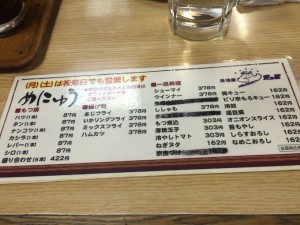 (月)(土)は祝祭日でも営業します
めにゅう
■もつ焼
ハツ(1本) 87円
タン(1本) 87円
ナンコツ(1本) 87円
カシラ(1本) 87円
レバー(1本) 87円
シロ(1本) 87円
盛り合わせ(5本) 422円
■揚げ物
あじフライ 378円
いかリングフライ 378円
ミックスフライ 378円
ハムカツ 378円
■一品料理
シューマイ 378円
ウインナー 378円
ししゃも
もつ煮込 303円
厚焼玉子 303円
冷やしトマト 303円
ねぎヌタ 303円
居酒屋
梅キュー 162円
ピリ辛もろキュー 162円
冷奴 162円
湯豆腐 162円
オニオンスライス 162円
豆もやし 162円
しらすおろし 162円
なめこおろし 162円